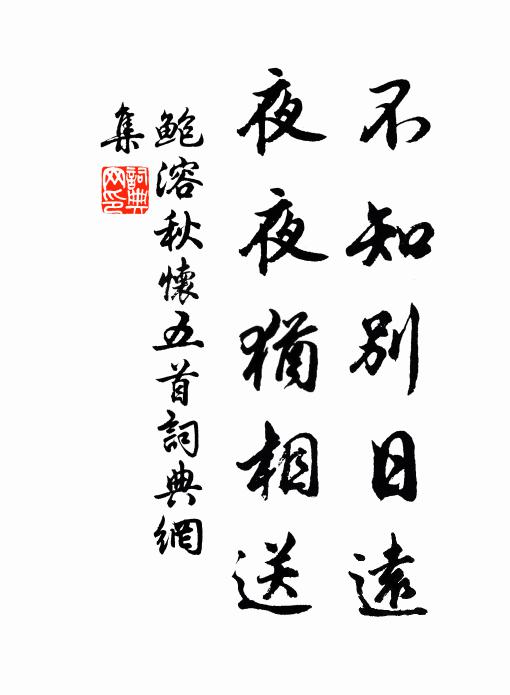 不知別日遠
夜夜猶相送
鮑溶秋懷五首詞典網
集
詞典
网印